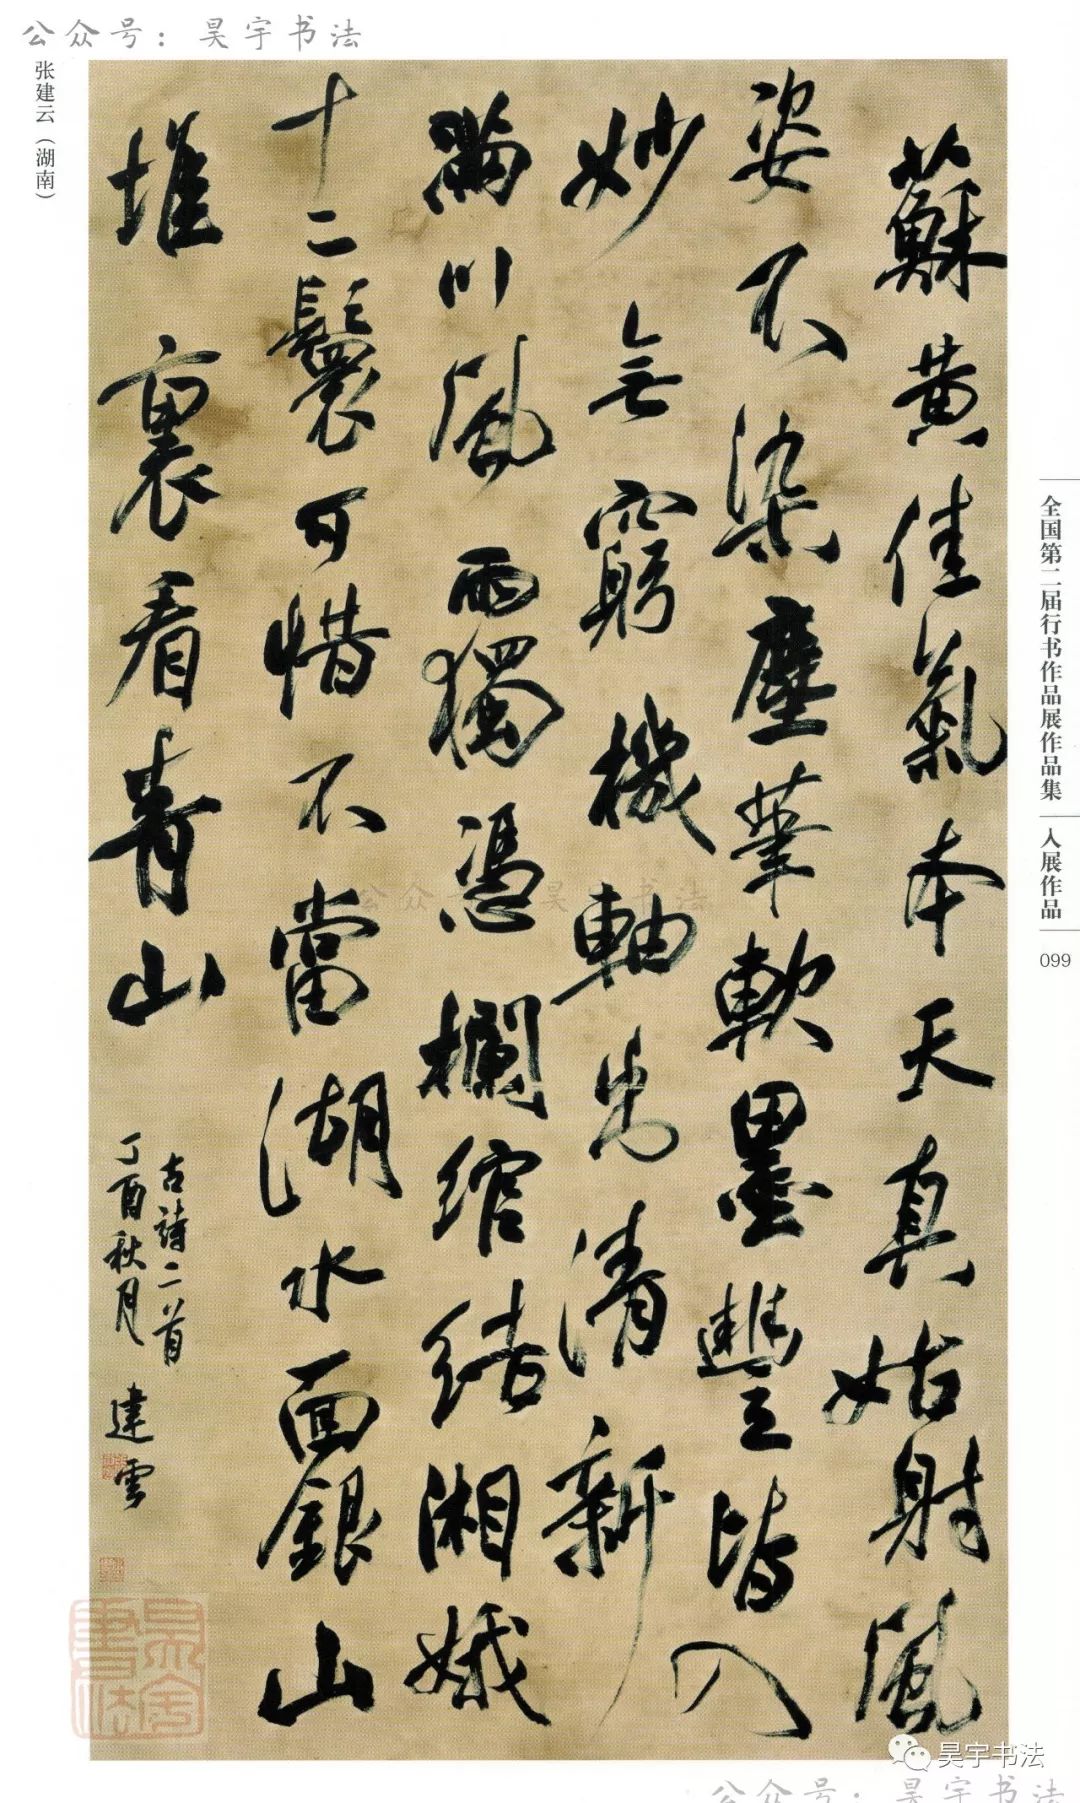 公众号：昊宇书法
张建云（湖南）
蘇黄佳氣本天真姑射風
姿不染塵筆軟墨豐皆入
妙無窮機軸出清新
滿川風雨獨憑欄綰結湘娥
十二鬟可惜不當湖水面銀山
堆裏看青山
古詩二首
丁酉秋月 建雲
全国第二届行书作品展作品集
入展作品
099
公众号 昊宇书法
昊宇書法
昊宇书法
公众号：昊宇书法